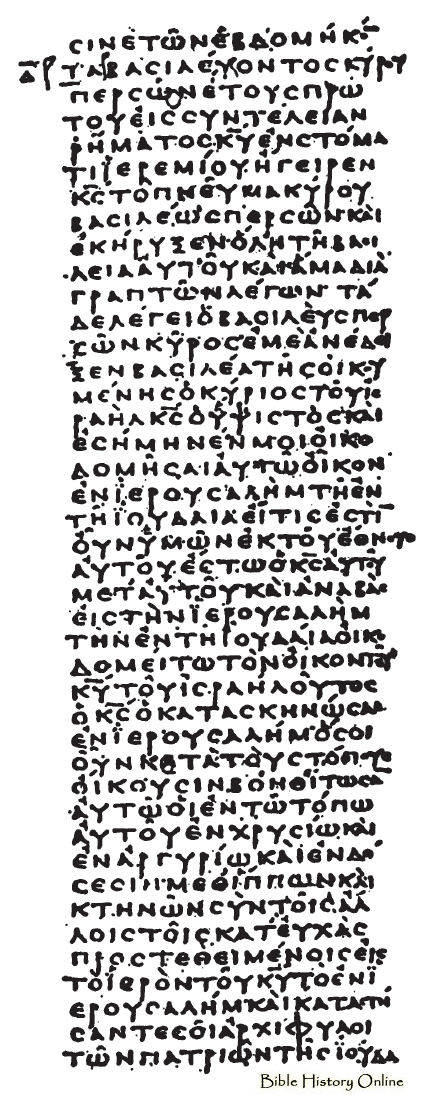 ϹΙΝΕΤΩΝΕΒΔΟΜΗΚΟ̅
ΤΑΒΑϹΙΛΕΥΟΝΤΟϹΚΥΡΟΥ
ΠΕΡϹΩΝΕΤΟΥϹΠΡΩ
ΤΟΥΕΙϹϹΥΝΤΕΛΕΙΑΝ
ΡΗΜΑΤΟϹΚ̅Υ̅ΕΝϹΤΟΜΑ
ΤΙΙΕΡΕΜΙΟΥΗΓΕΙΡΕΝ
Κ̅Ϲ̅ΤΟΠΝΕΥΜΑΚΥΡΟΥ
ΒΑϹΙΛΕΩϹΠΕΡϹΩΝΚΑΙ
ΕΚΗΡΥΞΕΝΟΛΗΤΗΒΑϹΙ
ΛΕΙΑΑΥΤΟΥΚΑΙΑΜΑΔΙΑ
ΓΡΑΠΤΩΝΛΕΓΩΝΤΑ
ΔΕΛΕΓΕΙΟΒΑϹΙΛΕΥϹΠΕΡ
ϹΩΝΚΥΡΟϹΕΜΕΑΝΕΔΕΙ
ΞΕΝΒΑϹΙΛΕΑΤΗϹΟΙΚΟΥ
ΜΕΝΗϹΟΚΥΡΙΟϹΤΟΥΙϹ
ΡΑΗΛΚ̅Ϲ̅ΟΥΨΙϹΤΟϹΚΑΙ
ΕϹΗΜΗΝΕΝΜΟΙΟΙΚΟ
ΔΟΜΗϹΑΙΑΥΤΩΟΙΚΟΝ
ΕΝΙΕΡΟΥϹΑΛΗΜΤΗΕΝ
ΤΗΙΟΥΔΑΙΑΕΙΤΙϹΕϹΤΙ̅
ΟΥΝΥΜΩΝΕΚΤΟΥΕΘΝΟΥϹ
ΑΥΤΟΥΕϹΤΩΟΚ̅Ϲ̅ΑΥΤΟΥ
ΜΕΤΑΥΤΟΥΚΑΙΑΝΑΒΑϹ
ΕΙϹΤΗΝΙΕΡΟΥϹΑΛΗΜ
ΤΗΝΕΝΤΗΙΟΥΔΑΙΑΟΙΚΟ
ΔΟΜΕΙΤΩΤΟΝΟΙΚΟΝΤΟΥ
Κ̅Υ̅ΤΟΥΙϹΡΑΗΛΟΥΤΟϹ
ΟΚ̅Ϲ̅ΟΚΑΤΑϹΚΗΝΩϹΑϹ
ΕΝΙΕΡΟΥϹΑΛΗΜΟϹΟΙ
ΟΥΝΚΑΤΑΤΟΥϹΤΟΠΟΥϹ
ΟΙΚΟΥϹΙΝΒΟΗΘΙΤΩϹΑ̅
ΑΥΤΩΟΙΕΝΤΩΤΟΠΩ
ΑΥΤΟΥΕΝΧΡΥϹΙΩΚΑΙ
ΕΝΑΡΓΥΡΙΩΚΑΙΕΝΔΟ
ϹΕϹΙΝΜΕΘΙΠΠΩΝΚΑΙ
ΚΤΗΝΩΝϹΥΝΤΟΙϹΑΛ
ΛΟΙϹΤΟΙϹΚΑΤΕΥΧΑϹ
ΠΡΟϹΤΕΘΕΙΜΕΝΟΙϹΕΙϹ
ΤΟΙΕΡΟΝΤΟΥΚ̅Υ̅ΤΟΕΝΙ
ΕΡΟΥϹΑΛΗΜΚΑΙΚΑΤΑϹΤΗ
ϹΑΝΤΕϹΟΙΑΡΧΙΦΥΛΟΙ
ΤΩΝΠΑΤΡΙΩΝΤΗϹΙΟΥΔΑ
Bible History Online